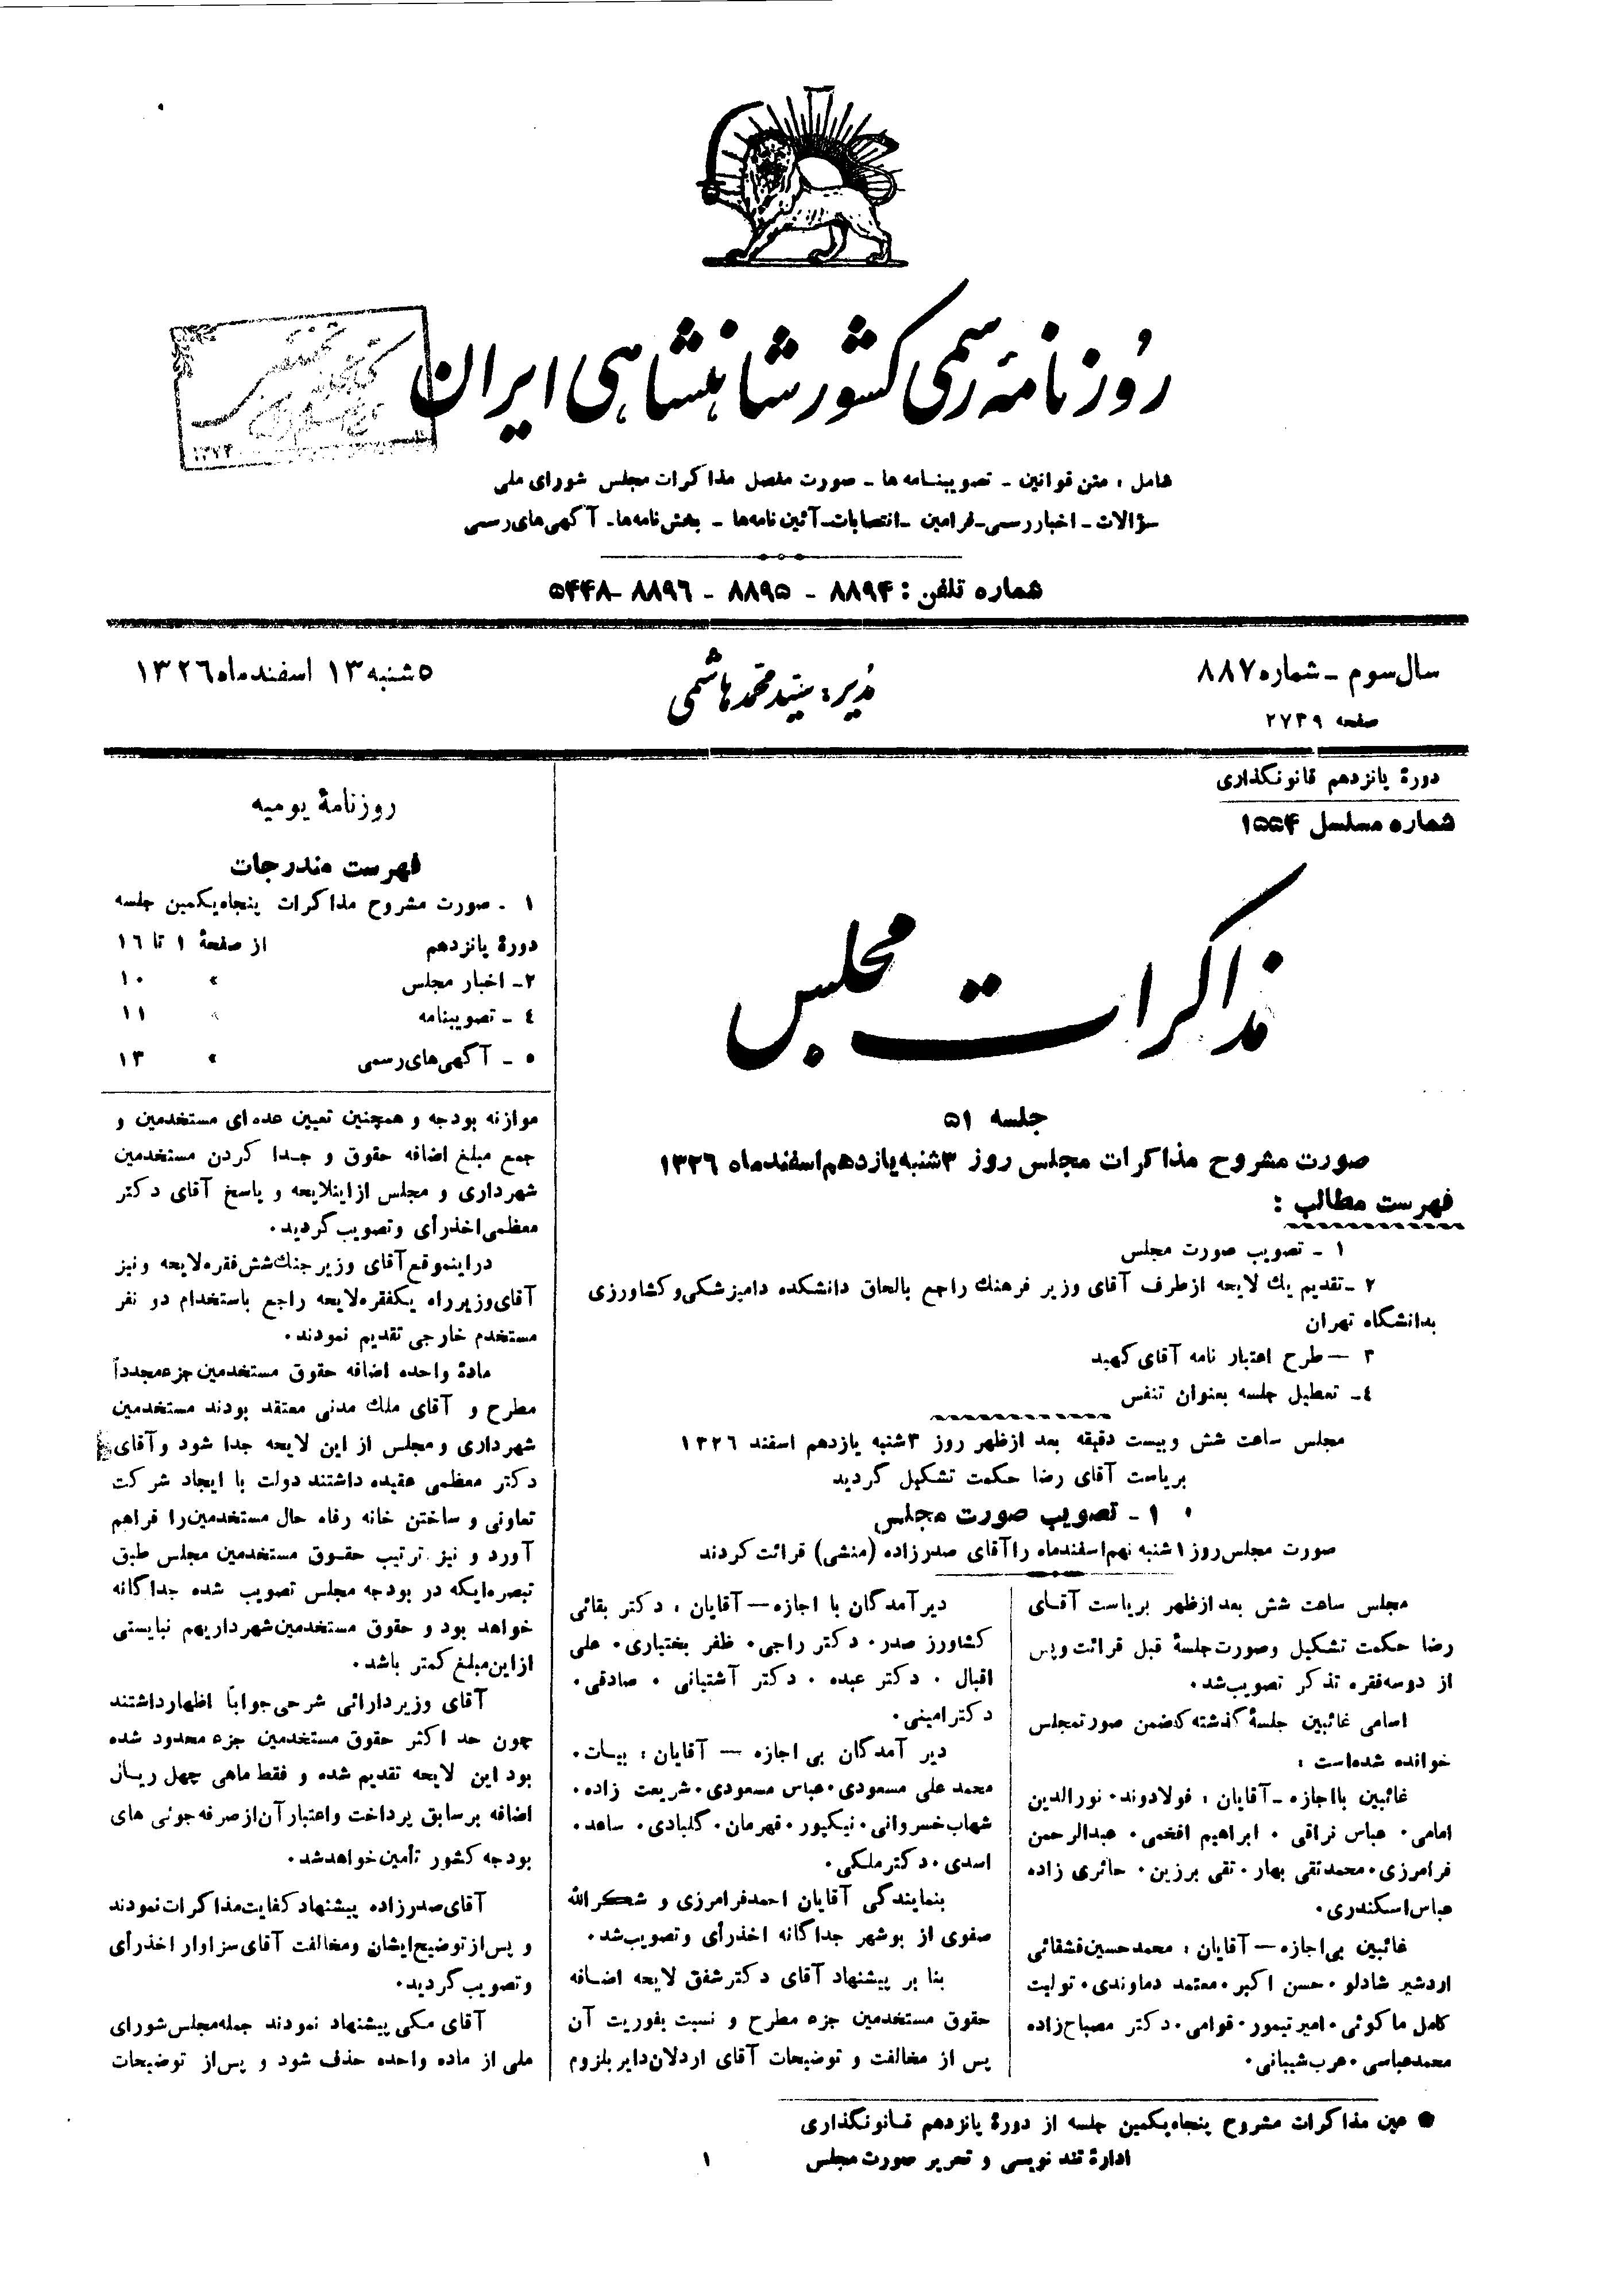 روزنامهٔ رسمی کشور شاهنشاهی ایران
شامل : متن قوانین - تصویبنامه ها - صورت مفصل مذاکرات مجلس شورای ملی
سؤالات - اخبار رسمی - فرامین - انتصابات - آئین نامه‌ها - بخش نامه‌ها - آگهی‌های رسمی
شماره تلفن : ۸۸۹۴ - ۸۸۹۵ - ۸۸۹۶ - ۵۴۴۸
سال سوم - شماره ۸۸۷
صفحه ۲۷۳۹
مدیر : سید محمد هاشمی
۵ شنبه ۱۳ اسفند ماه ۱۳۲۶
دورهٔ پانزدهم قانونگذاری
شماره مسلسل ۱۵۵۴
مذاکرات مجلس
جلسه ۵۱
صورت مشروح مذاکرات مجلس روز ۳ شنبه یازدهم اسفند ماه ۱۳۲۶
فهرست مطالب :
۱ - تصویب صورت مجلس
۲ - تقدیم یك لایحه از طرف آقای وزیر فرهنك راجع بالحاق دانشکده دامپزشکی و کشاورزی
بدانشگاه تهران
۳ — طرح اعتبار نامه آقای کهبد
٤ - تعطیل جلسه بعنوان تنفس
مجلس ساعت شش و بیست دقیقه بعد از ظهر روز ۳ شنبه یازدهم اسفند ۱۳۲۶
بریاست آقای رضا حکمت تشکیل گردید
۱ - تصویب صورت مجلس
صورت مجلس روز ۱ شنبه نهم اسفند ماه را آقای صدرزاده (منشی) قرائت کردند
مجلس ساعت شش بعد از ظهر بریاست آقای
رضا حکمت تشکیل و صورت جلسهٔ قبل قرائت و پس
از دو سه فقره تذکر تصویب شد.
اسامی غائبین جلسهٔ گذشته که ضمن صورتمجلس
خوانده شده است :
غائبین با اجازه - آقایان : فولادوند. نورالدین
امامی. عباس نراقی. ابراهیم افخمی. عبدالرحمن
فرامرزی. محمدتقی بهار. تقی برزین. حائری زاده
عباس اسکندری.
غائبین بی اجازه — آقایان : محمد حسین قشقائی
اردشیر شادلو. حسن اکبر. معتمد دماوندی. تولیت
کامل ماکوئی. امیر تیمور. قوامی. دکتر مصباح زاده
محمد عباسی. عرب شیبانی.
دیر آمدگان با اجازه — آقایان : دکتر بقائی
کشاورز صدر. دکتر راجی. ظفر بختیاری. علی
اقبال. دکتر عبده. دکتر آشتیانی. صادقی.
دکتر امینی.
دیر آمدگان بی اجازه — آقایان : بیات.
محمد علی مسعودی. عباس مسعودی. شریعت زاده.
شهاب خسروانی. نیکپور. قهرمان. گلبادی. ساعد.
اسدی. دکتر ملکی.
بنمایندگی آقایان احمد فرامرزی و شکرالله
صفوی از بوشهر جداگانه اخذ رأی و تصویب شد.
بنا بر پیشنهاد آقای دکتر شفق لایحه اضافه
حقوق مستخدمین جزء مطرح و نسبت بفوریت آن
پس از مخالفت و توضیحات آقای اردلان دایر بلزوم
روزنامهٔ یومیه
فهرست مندرجات
۱ - صورت مشروح مذاکرات پنجاه یکمین جلسه
دورهٔ پانزدهم از صفحهٔ ۱ تا ۱۶
۲ - اخبار مجلس » ۱۰
٤ - تصویبنامه » ۱۱
۵ - آگهی‌های رسمی » ۱۳
موازنه بودجه و همچنین تعیین عده‌ای مستخدمین و
جمع مبلغ اضافه حقوق و جدا کردن مستخدمین
شهرداری و مجلس از اینلایحه و پاسخ آقای دکتر
معظمی اخذ رأی و تصویب گردید.
در اینموقع آقای وزیر جنك شش فقره لایحه و نیز
آقای وزیر راه یکفقره لایحه راجع باستخدام دو نفر
مستخدم خارجی تقدیم نمودند.
مادهٔ واحده اضافه حقوق مستخدمین جزء مجدداً
مطرح و آقای ملك مدنی معتقد بودند مستخدمین
شهرداری و مجلس از این لایحه جدا شود و آقای
دکتر معظمی عقیده داشتند دولت با ایجاد شرکت
تعاونی و ساختن خانه رفاه حال مستخدمین را فراهم
آورد و نیز ترتیب حقوق مستخدمین مجلس طبق
تبصره‌ایکه در بودجه مجلس تصویب شده جداگانه
خواهد بود و حقوق مستخدمین شهرداریهم نبایستی
از این مبلغ کمتر باشد.
آقای وزیر دارائی شرحی جواباً اظهار داشتند
چون حد اکثر حقوق مستخدمین جزء محدود شده
بود این لایحه تقدیم شده و فقط ماهی چهل ریال
اضافه بر سابق پرداخت و اعتبار آن از صرفه جوئی های
بودجه کشور تأمین خواهد شد.
آقای صدرزاده پیشنهاد کفایت مذاکرات نمودند
و پس از توضیح ایشان و مخالفت آقای سزاوار اخذ رأی
و تصویب گردید.
آقای مکی پیشنهاد نمودند جمله مجلس شورای
ملی از ماده واحده حذف شود و پس از توضیحات
● عین مذاکرات مشروح پنجاه یکمین جلسه از دورهٔ پانزدهم قانونگذاری
ادارهٔ تند نویسی و تحریر صورت مجلس
۱